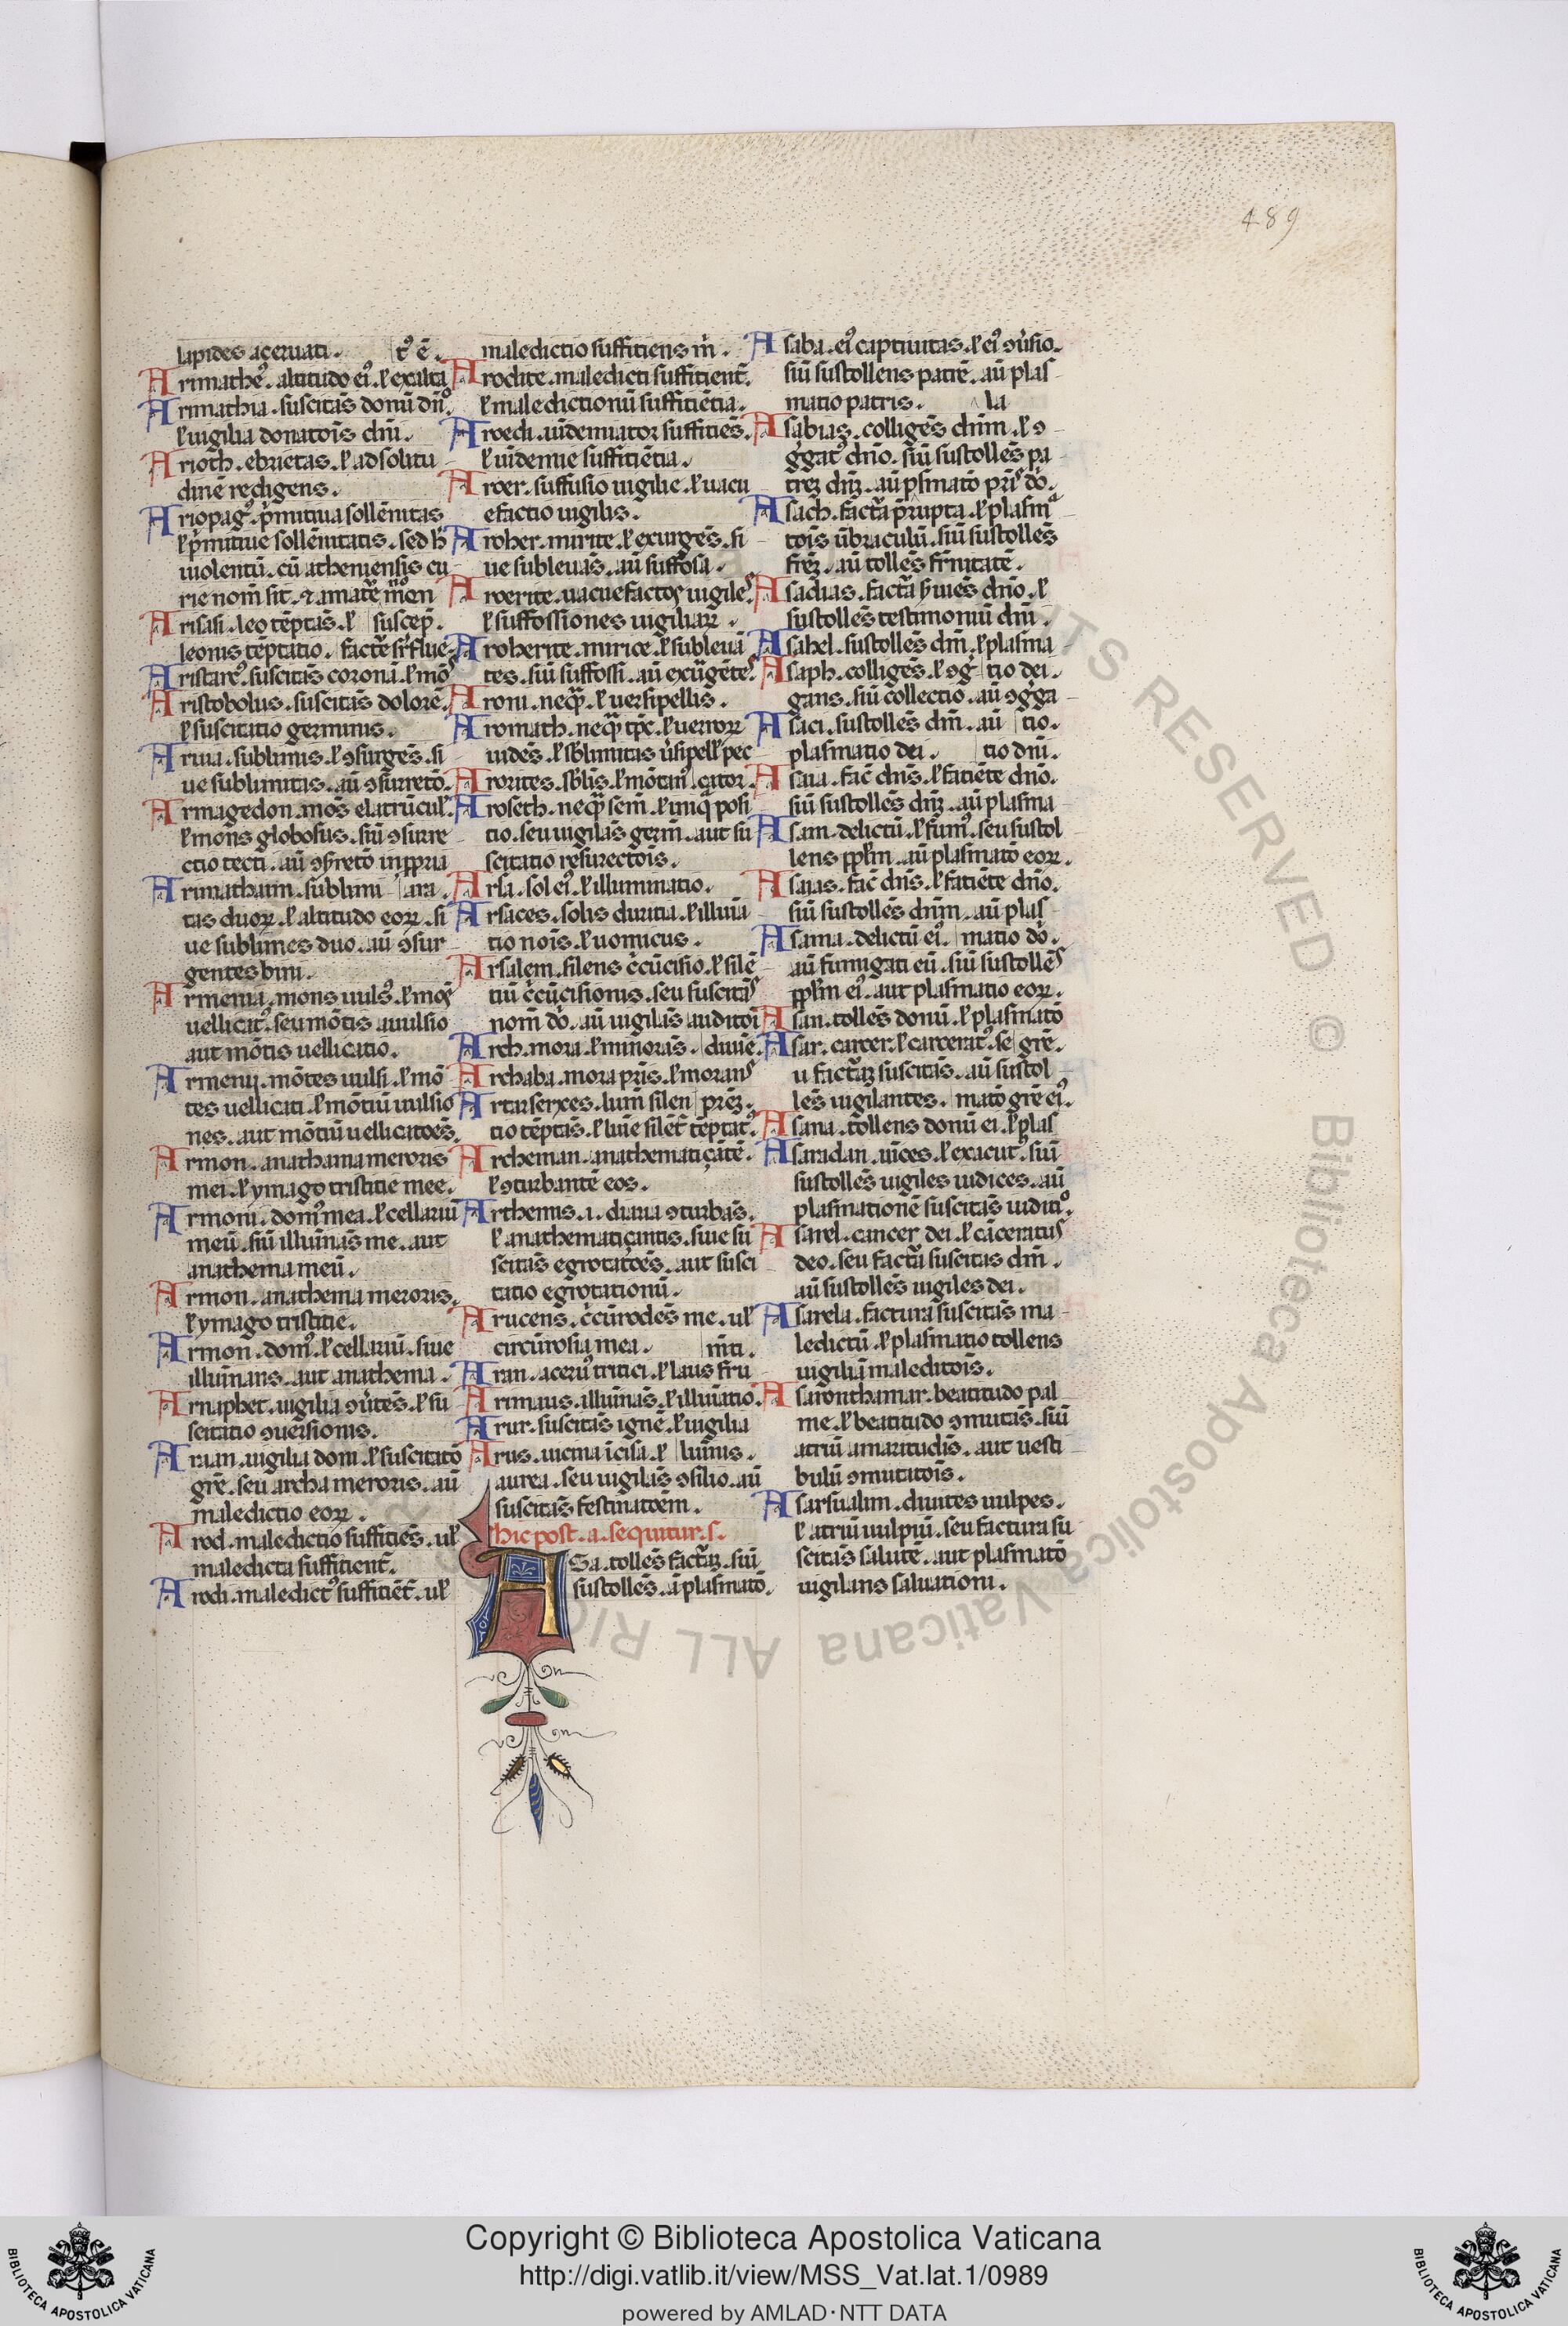 489
lapides aceruati. tꝰ ē.
Arimatheꝰ. altitudo eiꝰ. ł exalta
Arimathia. suscitās donū dn̄ꝰ
ł uigilia donatoīs dn̄i.
Arioth. ebrietas. ł ad solitu
dinē redigens.
Ariopagꝰ. pͥmitiua sollēnitas
ł pͥmitiue sollēnitatis. sed h̄
uiolentū. cū atheniensis cu
rie nom̄ sit.
Arisasi. leo tēptās. ł suscep̄.
leonis tēptatio.
Aristarcꝰ. suscitās coronā. ł mō
Aristobolus. suscitās dolorē.
ł suscitatio germinis.
Aruia. sublimis. ł ꝯsurgēs. si
ue sublimitas. aū ꝯsurrectō.
Armagedon. mōs elatrūculꝰ.
ł mons globosus. siū ꝯsurre
ctio tecti. aū in ppria
Arimathaim. sublimi ara.
tas duoꝝ. ł altitudo eoꝝ. si
ue sublimes duo. aū ꝯsur
gentes bini.
Armenia. mons uulsꝰ. ł mōs
uellicatꝰ. seu mōtis auulsio
aut mōtis uellicatio.
Armenij. mōtes uulsi. ł mō
tes uellicati. ł mōtiū uulsio
nes. aut mōtiū uellicatoēs.
Armon. anathama meroris
mei. ł ymago tristitie mee.
Armoni. domꝰ mea. ł cellariū
meū. siū illuīnās me. aut
anathema meū.
Armon. anathema meroris.
ł ymago tristitie.
Armon. domꝰ. ł cellariū. siue
illuīnans. aut anathema.
Arnaphet. uigilia ꝯuͥtēs. ł su
scitatio ꝯuersionis.
Arnan. uigilia doni. ł suscitatō
gr̄e. seu archa meroris. aū
maledictio eoꝝ.
Arod. maledictio sufficiēs. uł
maledicta sufficient̄.
Arodi. maledictꝰ sufficiēt̄. uł
maledictio sufficiens m̄.
Arodite. maledicti sufficient̄.
ł maledictionū sufficiētia.
Aroedi. uīdemiator sufficiēs.
ł uīdemie sufficiētia.
Aroer. suffusio uigilie. ł uacu
efactio uigilis.
Aroher. mirite. ł exurgēs. si
ue subleuās. aū suffossa.
Aroerite. uacuefactoꝫ uigileˢ
ł suffossiones uigiliaꝝ.
Aroherite. mirice. ł subleuā
tes. siū suffossi. aū exūgēteˢ.
Aroni. neqͣ. ł uersipellis.
Aromath. neqͣ tp̄e. ł uerroꝝ
uidēs. ł sb̄limitas uͥsipelł pec
Arorites. sb̄lis. ł mōtanꝰ cator.
Aroseth. neqͣ sem̄. ł iniqͣ posi
tio. seu uigilās germ̄. aut su
scitatio resurectoīs.
Arsa. sol eiꝰ. ł illuminatio.
Arsaces. solis duritia. ł illuīa
tio noīs. ł uomicus.
Arsalem. silens cͥcūcisio. ł silē
tiū cͥcūcisionis. seu suscitāˢ
nom̄ dō. aū uigilās auditoī
Arch. mora. ł minorās. diuiē.
Archaba. mora pr̄is. ł moranˢ
Artarserxes. lum̄ silen pr̄eꝫ.
tio tēptās. ł luīe silēt̄ tēptatꝰ.
Archeman. anathematiçātē.
ł ꝯturbantē eos.
Arthemis. ı. diana ꝯturbās.
ł anathematiçantis. siue su
scitās egrotatoēs. aut susci
tatio egrotationū.
Arucens. cͥcūrodēs me. uł
circūrosia mea. nīti.
Aran. aceruꝰ tritici. ł laus fru
Arimaus. illuīnās. ł illuīatio.
Arur. suscitās ignē. ł uigilia
Arus. uicina īcisa. ł luīnis.
aurea. seu uigilās ꝯsilio. aū
suscitās festinatoēm.
hic post. a. sequitur. s.
ASa. tollēs factāꝫ. siū
sustollēs. ā plasmatō.
Asaba. eiꝰ captiuitas. ł eiꝰ ꝯuͥsio.
siū sustollens patrē. aū plas
matio patris. la
Asabias. colligēs dn̄m. ł ꝯ
gͥgatꝰ dn̄o. siū sustollēs pa
treꝫ dn̄ꝫ. aū psmatō pr̄iˢ dō.
Asach. fact̄a prupta. ł plasmͣ
toīs ūbraculū. siū sustollēs
fr̄eꝫ. aū tollēs fr̄nitatē.
Asadias. dn̄o. ł
sustollēs testimoniū dn̄i.
Asahel. sustollēs dm̄. ł plasma
Asaph. colligēs. ł ꝯgͥ tio dei.
gans. siū collectio. aū ꝯgͥga
Asaci. sustollēs dm̄. aū tio.
plasmatio dei. tio dn̄i.
Asaia. fac̄ dn̄s. ł fatiēte dn̄o.
siū sustollēs dn̄ꝫ. aū plasma
Asam. delictū. ł fumꝰ. seu sustol
lens ppłm. aū plasmatō eoꝝ.
Asaias. fac̄ dn̄s. ł fatiēte dn̄o.
siū sustollēs dn̄m. aū plas
Asama. delictū eiꝰ. matio dō.
aū fumigati eū. siū sustollēˢ
ppłm eiꝰ. aut plasmatio eoꝝ.
Asan. tollēs donū. ł plasmatō
Asar. carcer. ł carceratꝰ. se gr̄e.
u fact̄aꝫ suscitās. aū sustol
lēs uigilantes. matō gr̄e eiꝰ.
Asana. tollens donū ei. ł plas
Asaradan. uīces. ł exacut̄. siū
sustollēs uigiles iudices. aū
plasmationē suscitās iuditiꝰ.
Asarel. cancer dei. ł cāceratuˢ
deo. seu fact̄a suscitās dm̄.
aū sustollēs uigiles dei.
Asarela. factura suscitās ma
ledictū. ł plasmatio tollens
uigiliā maleditoīs.
Asaronthamar. beatitudo pal
me. ł beatitudo ꝯmutās. siū
atriū amaritudīs. aut uesti
bulū ꝯmutatoīs.
Asarsualim. diuites uulpes.
ł atriū uulpiū. seu factura su
scitās salutē. aut plasmatō
uigilans saluationi.
Copyright © Biblioteca Apostolica Vaticana
http://digi.vatlib.it/view/MSS_Vat.lat.1/0989
powered by AMLAD·NTT DATA
BIBLIOTECA APOSTOLICA VATICANA
BIBLIOTECA APOSTOLICA VATICANA